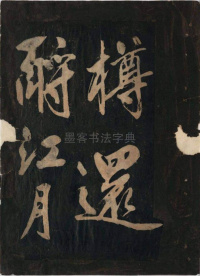 樽還
酹江月
墨客书法字典